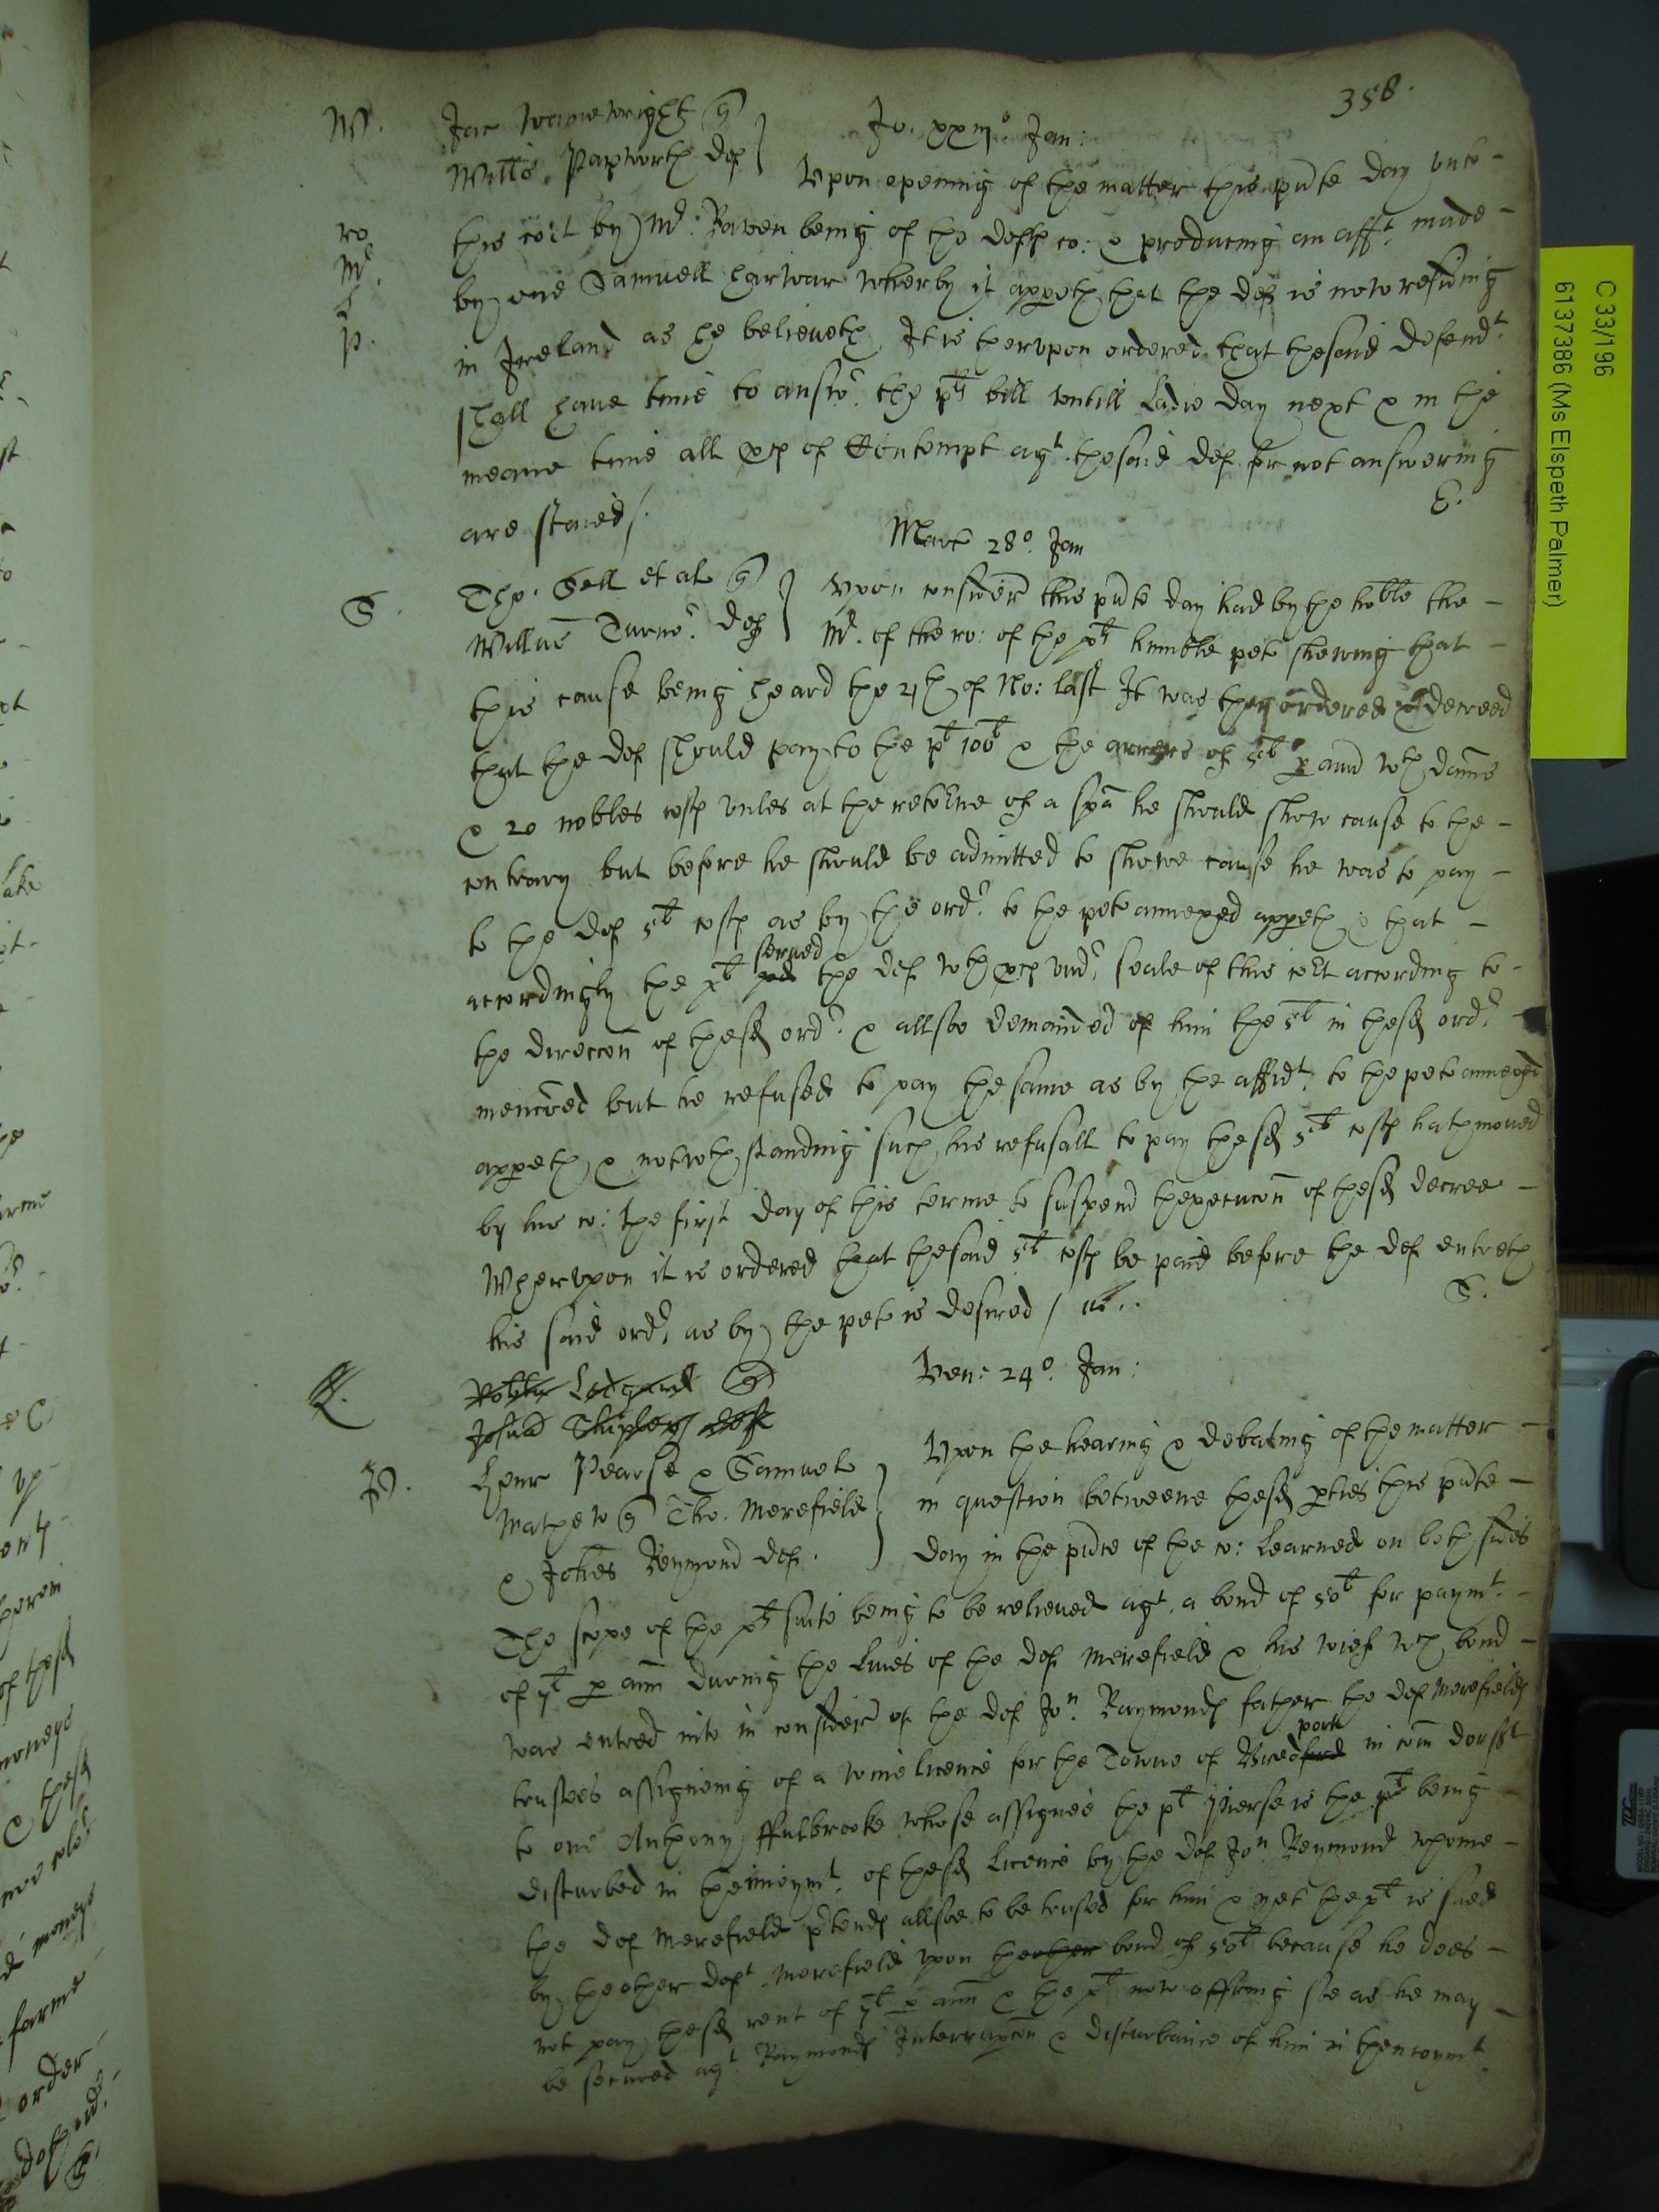 358.
W. Jac Wainewright q
Willus. Papworth def } Jo. xxiij°. Jan:
Upon opening of the matter this pñte day unto
this co:rt by Mr: Raven being of the deftes co: & producing an afft. made
by one Samuell harwar wherby it appeth that the def is now residing
in Ireland as he believeth, It is therupon ordered that the said Defendt.
shall have time to answr. the plts bill untill Ladie day next & in the
meane time all pces of Contempt agt. the said def for not answering
are staied /.
E.
ro
Mr.
p.
Mart 28°. Jan
S. Tho. Sell et al q
Willus Turnor. def } Upon consider this pñte day had by the hoble the
Mr. of the ro: of the plts humble peto shewing that
this cause being heard the 21th of No: last It was then ordered & decreed
that the def should pay to the plt 100l & the arrers of 5l p ann wth dams
& 20 nobles costs unles at the retorne of a spa he should show cause to the
contrary but before he should be admitted to shewe cause he was to pay
to the def 5l costs as by the ordr. to the peto annexed appeth & that
accordingly the plt served the def wth pces undr. seale of this co:rt according to
the direccon of the sd ordr. & allsoe demanded of him the 5l in the sd ordr.
mencoed but he refused to pay the same as by the affidt. to the peto annexed
appeth, & notwthstanding such his refusall to pay the sd 5l costs hath moved
by his co: the first day of this terme to suspend thexecucon of the sd decree
Wherupon it is ordered that the said 5l costs be paid before the def entreth
his said ordr. as by the peto is desired /
S.
Ven: 24°. Jan:
L. Robtus Ledgard q
Josua Shipley def
P. Henr Pearse & Samuel
Mathew q Tho. Merefield
& Johes Reymond def. }
Upon the hearing & debating of the matter
in question betweene the sd pties this pñte
day in the pñce of the co: learned on both sides
The scope of the plts suite being to be relieved agt. a bond of 50l for paymt.
of 7l p ann during the lives of the def Merefield & his wief wch bond
was entred into in consider of the def Jon. Raymonds father the def Merefields
trustees assigneing of a wine licence for the Towne of Bredport in com Dorsst
to one Anthony ffulbrooke whose assignee the plt Pierse is the plt being
disturbed in the inioymt. of the sd licence by the def Jon Reymond whome
the def Merefield ptends allsoe to be trusted for him & yet the plt is sued
by the other deft Merefield upon the other bond of 50l because he does
not pay the sd rent of 7l p ann & the plt now offring soe as he may
be secured agt. Raymonds Interrupcon & disturbance of him in thenioymt.
C 33/196
6137386 (Ms Elspeth Palmer)